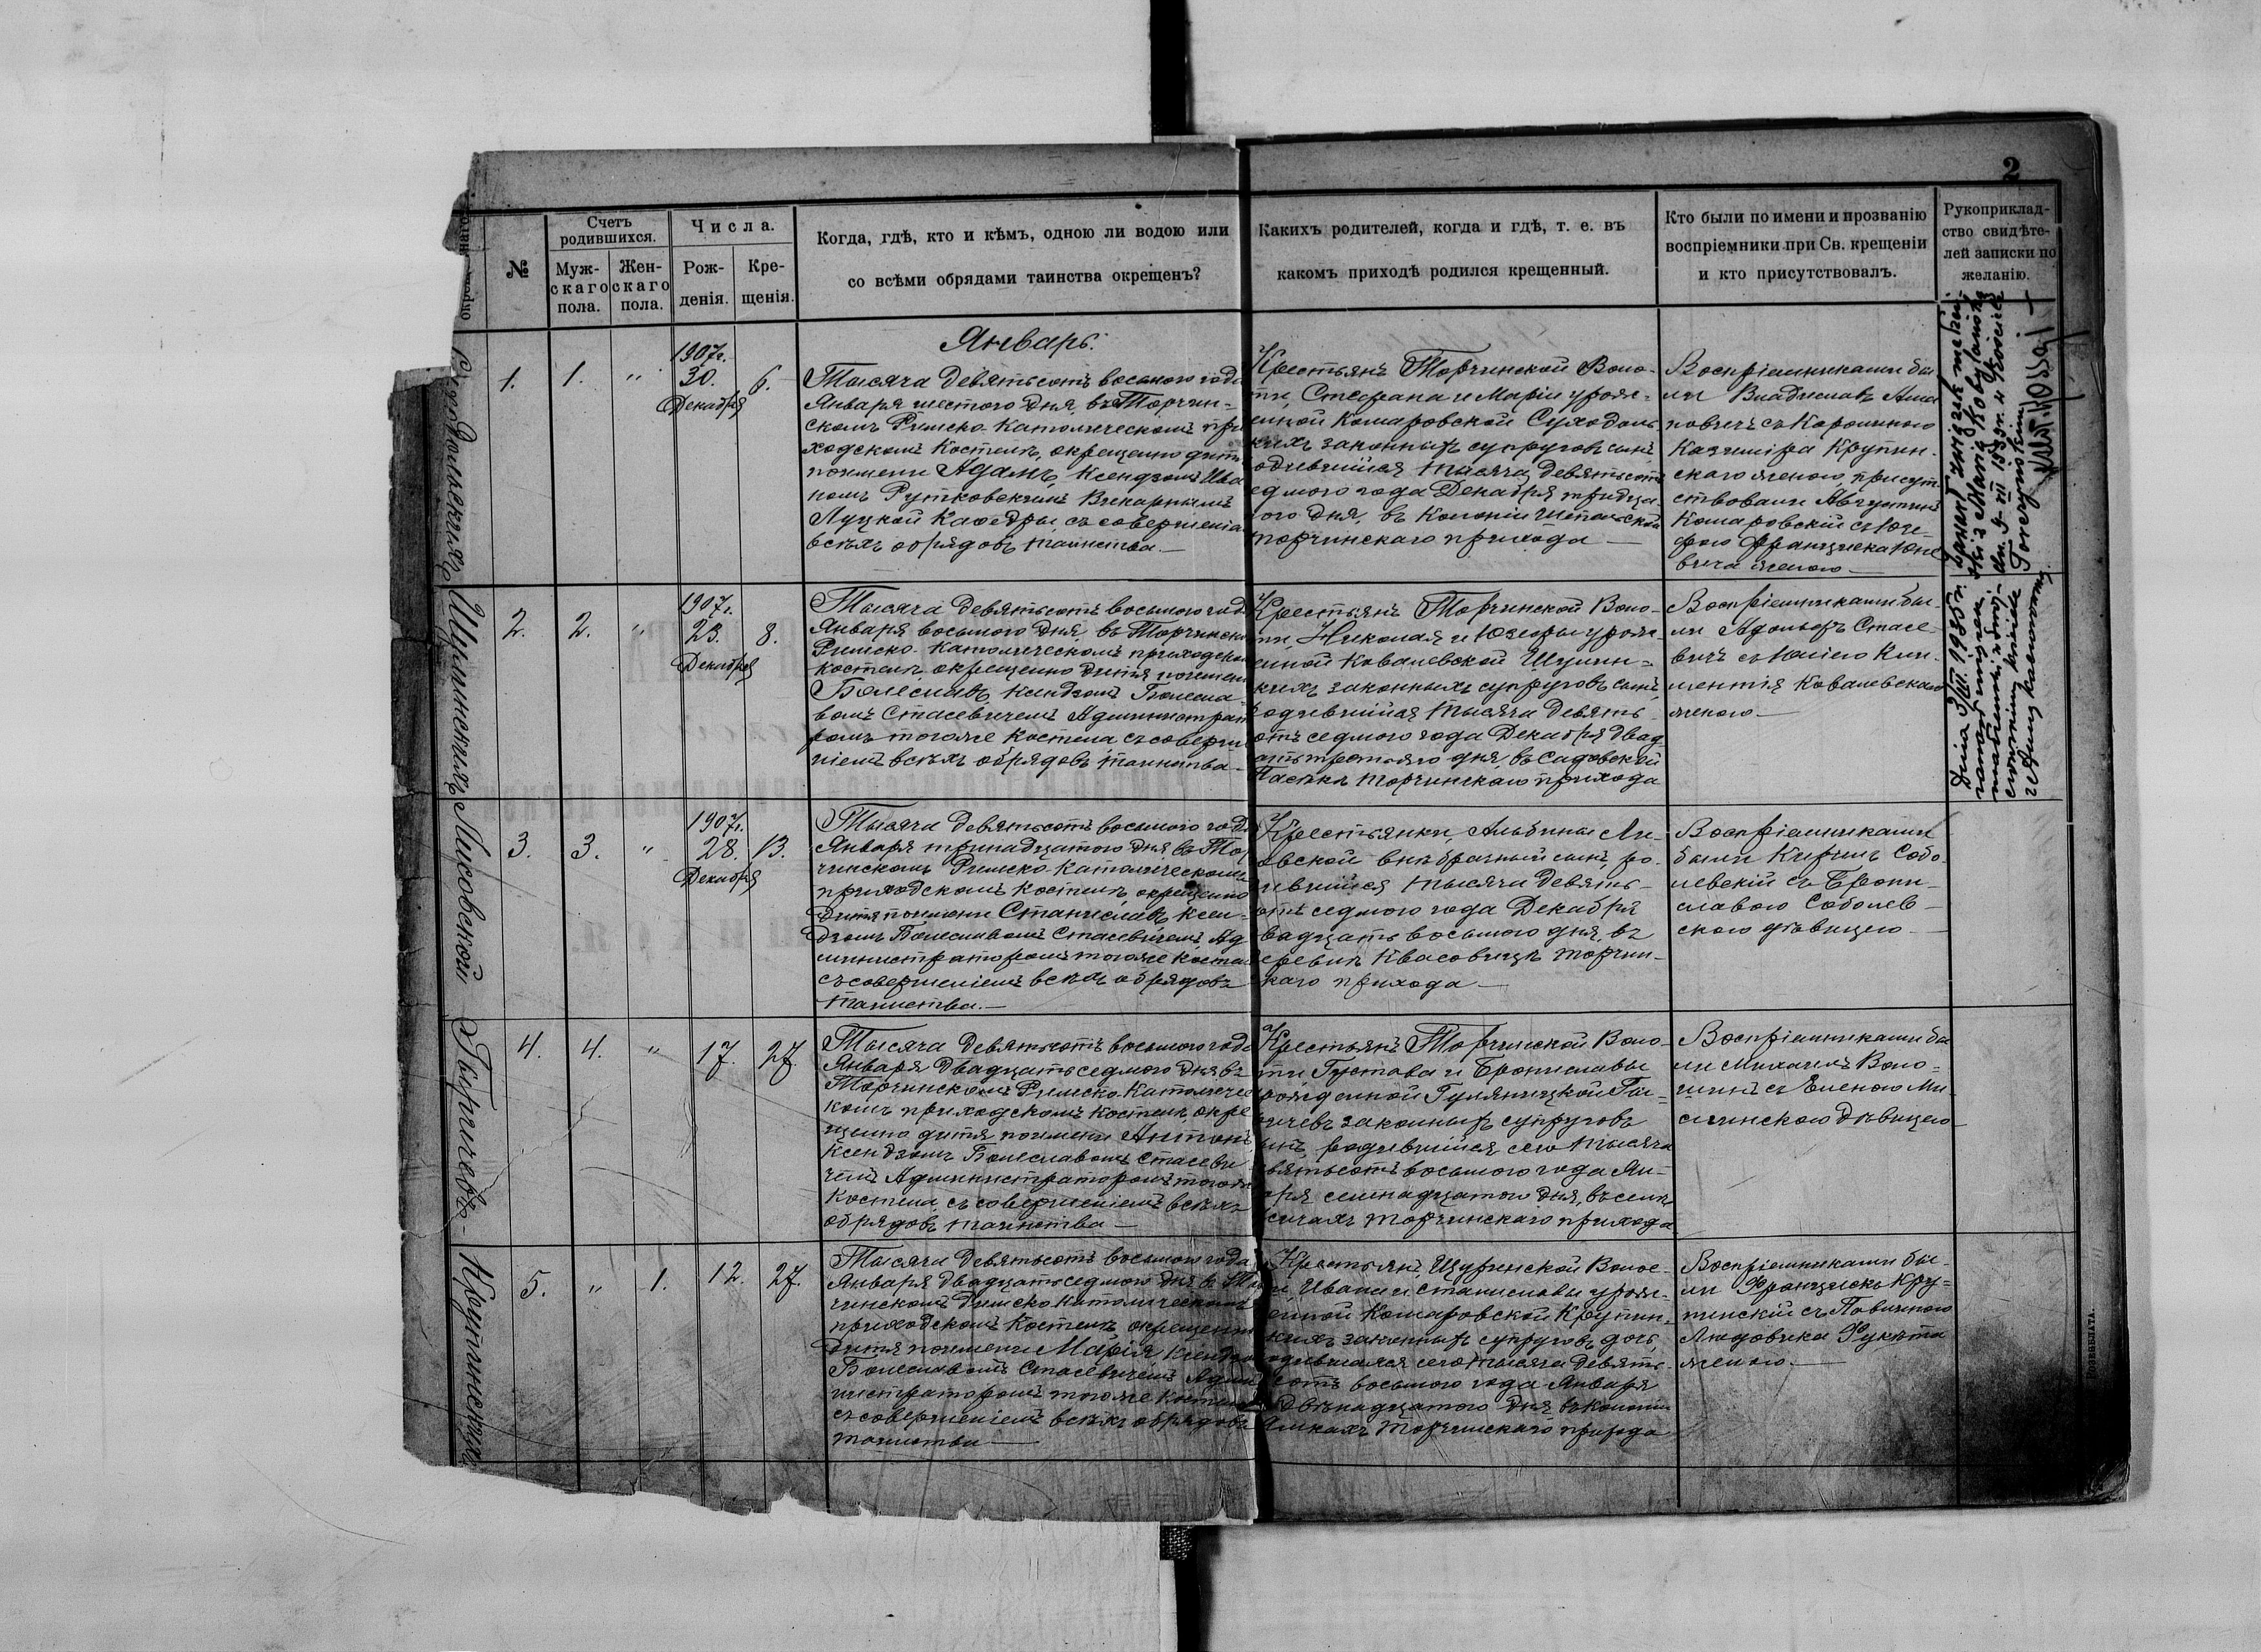 2
№
Счетъ
родившихся.
Муж-
скаго
пола.
Жен-
скаго
пола.
Числа.
Рож-
денія.
Кре-
щенія.
Когда, гдѣ, кто и кѣмъ, одною ли водою или
со всѣми обрядами таинства окрещенъ?
Какихъ родителей, когда и гдѣ, т. е. въ
какомъ приходѣ родился крещенный.
Кто были по имени и прозванію
воспріемники при Св. крещеніи
и кто присутствовалъ.
Рукоприклад-
ство свидѣте-
лей записки по
желанію.
Январь.
1.
1.
"
1907г.
30.
Декабря
6.
Тысяча девятьсотъ восьмого года
Января шестого дня, въ Торчин-
скомъ Римско-Католическомъ при
ходскомъ Костелѣ, окрещено дитя
по имени Адамъ, Ксендзомъ Ива
номъ Рутковскимъ Викарнымъ
Луцкой Кафедры, съ совершеніем
всѣхъ обрядовъ таинства.—
Крестьянъ Торчинской Воло-
ти, Стефана и Маріи урож-
енной Комаровской Суходоль
кихъ законныхъ супруговъ сынъ
одившійся тысяча девятьсотъ
едмого года Декабря тридца
ого дня, въ Колоніи
Торчинскаго прихода —
Воспріемниками бы
ли Владиславъ Ада
повичъ съ Каролиною
Казиміра Крупин-
скаго женою, присут-
ствовали Августинъ
Комаровскій съ Юзе-
фою Франциска
вича женою—
2.
2.
"
1907г.
23.
Декабря
8.
Тысяча девятьсотъ восьмого года
Января восьмого дня, въ Торчинско
Римско-Католическомъ приходско
костелѣ окрещено дитя по имени
Болеславъ, Ксендзомъ Болесла-
вомъ Стасевичемъ Администрат
ромъ того же Костела, съ соверше
ніемъ всѣхъ обрядовъ таинства—
Крестьянъ Торчинской Воло-
ти, Николая и Юзефы урож-
енной Ковалевской Шумин-
кихъ законныхъ супруговъ сынъ,
одившійся тысяча девять-
отъ седмого года Декабря двад-
ать третьяго дня, въ Садовской
Пасѣкѣ Торчинскаго прихода
Воспріемниками бы-
ли Адольфъ Стасе-
вичъ съ Юліею Кли-
ментія Ковалевскаго
женою—
3.
3.
"
1907г.
28.
Декабря
13.
Тысяча девятьсотъ восьмого года
Января тринадцатого дня, въ Тор
чинскомъ Римско-Католическомъ
приходскомъ Костелѣ, окрещено
дитя по имени Станиславъ, Ксен-
дзомъ Болеславомъ Стасевичемъ Ад
министраторомъ того же Костел
съ совершеніемъ всѣхъ обрядовъ
таинства.—
Крестьянки, Альбины Ли-
овской внѣбрачный сынъ, ро-
ившійся тысяча девять-
отъ седмого года Декабря
вадцать восьмого дня, въ
еревнѣ Квасовицѣ Торчин-
каго прихода —
Воспріемниками
были Кирилъ Собо-
левскій съ Брони-
славою Соболев-
скою дѣвицею—
4.
4.
"
17.
27.
Тысяча девятьсотъ восьмого года
Января двадцать седмого дня въ
Торчинскомъ Римско-Католичес
комъ приходскомъ Костелѣ, окре
щено дитя по имени Антонъ,
Ксендзомъ Болеславомъ Стасеви
чемъ Администраторомъ того же
Костела, съ совершеніемъ всѣхъ
обрядовъ таинства —
Крестьянъ Торчинской Воло-
ти Густава и Брониславы
рожденной
ичевъ законныхъ супруговъ
ынъ, родившійся сего тысяча
евятьсотъ восьмого года Ян-
аря семнадцатого дня, въ
Торчинскаго прихода
Воспріемниками бы
ли Михаилъ Воло-
шинъ съ Еленою Ми-
дѣвицею—
5.
"
1.
12.
27.
Тысяча девятьсотъ восьмого года
Января двадцать седмого дня въ Тор
чинскомъ Римско-Католическомъ
приходскомъ Костелѣ, окрещено
дитя по имени Марія Ксендзо
Болеславомъ Стасевичемъ Адми
нистраторомъ того же Костела
съ совершеніемъ всѣхъ обрядовъ
таинства —
Крестьянъ Щуринской Волос-
и, Ивана и Станиславы урож-
енной Комаровской Крупин-
кихъ законныхъ супруговъ дочь,
одившаяся сего тысяча девять-
сотъ восьмого года Января
двѣнадцатого дня въ колоніи
Торчинскаго прихода
Воспріемниками бы-
ли Францискъ Кру-
пинскій съ Павлиною
Людовика Фукета
женою.—
Суходольскихъ
Шуминскихъ
Лисовской
Крупинскихъ
Dnia 3/III 1935r.
zawarł związek małżeń-
ski z Marią